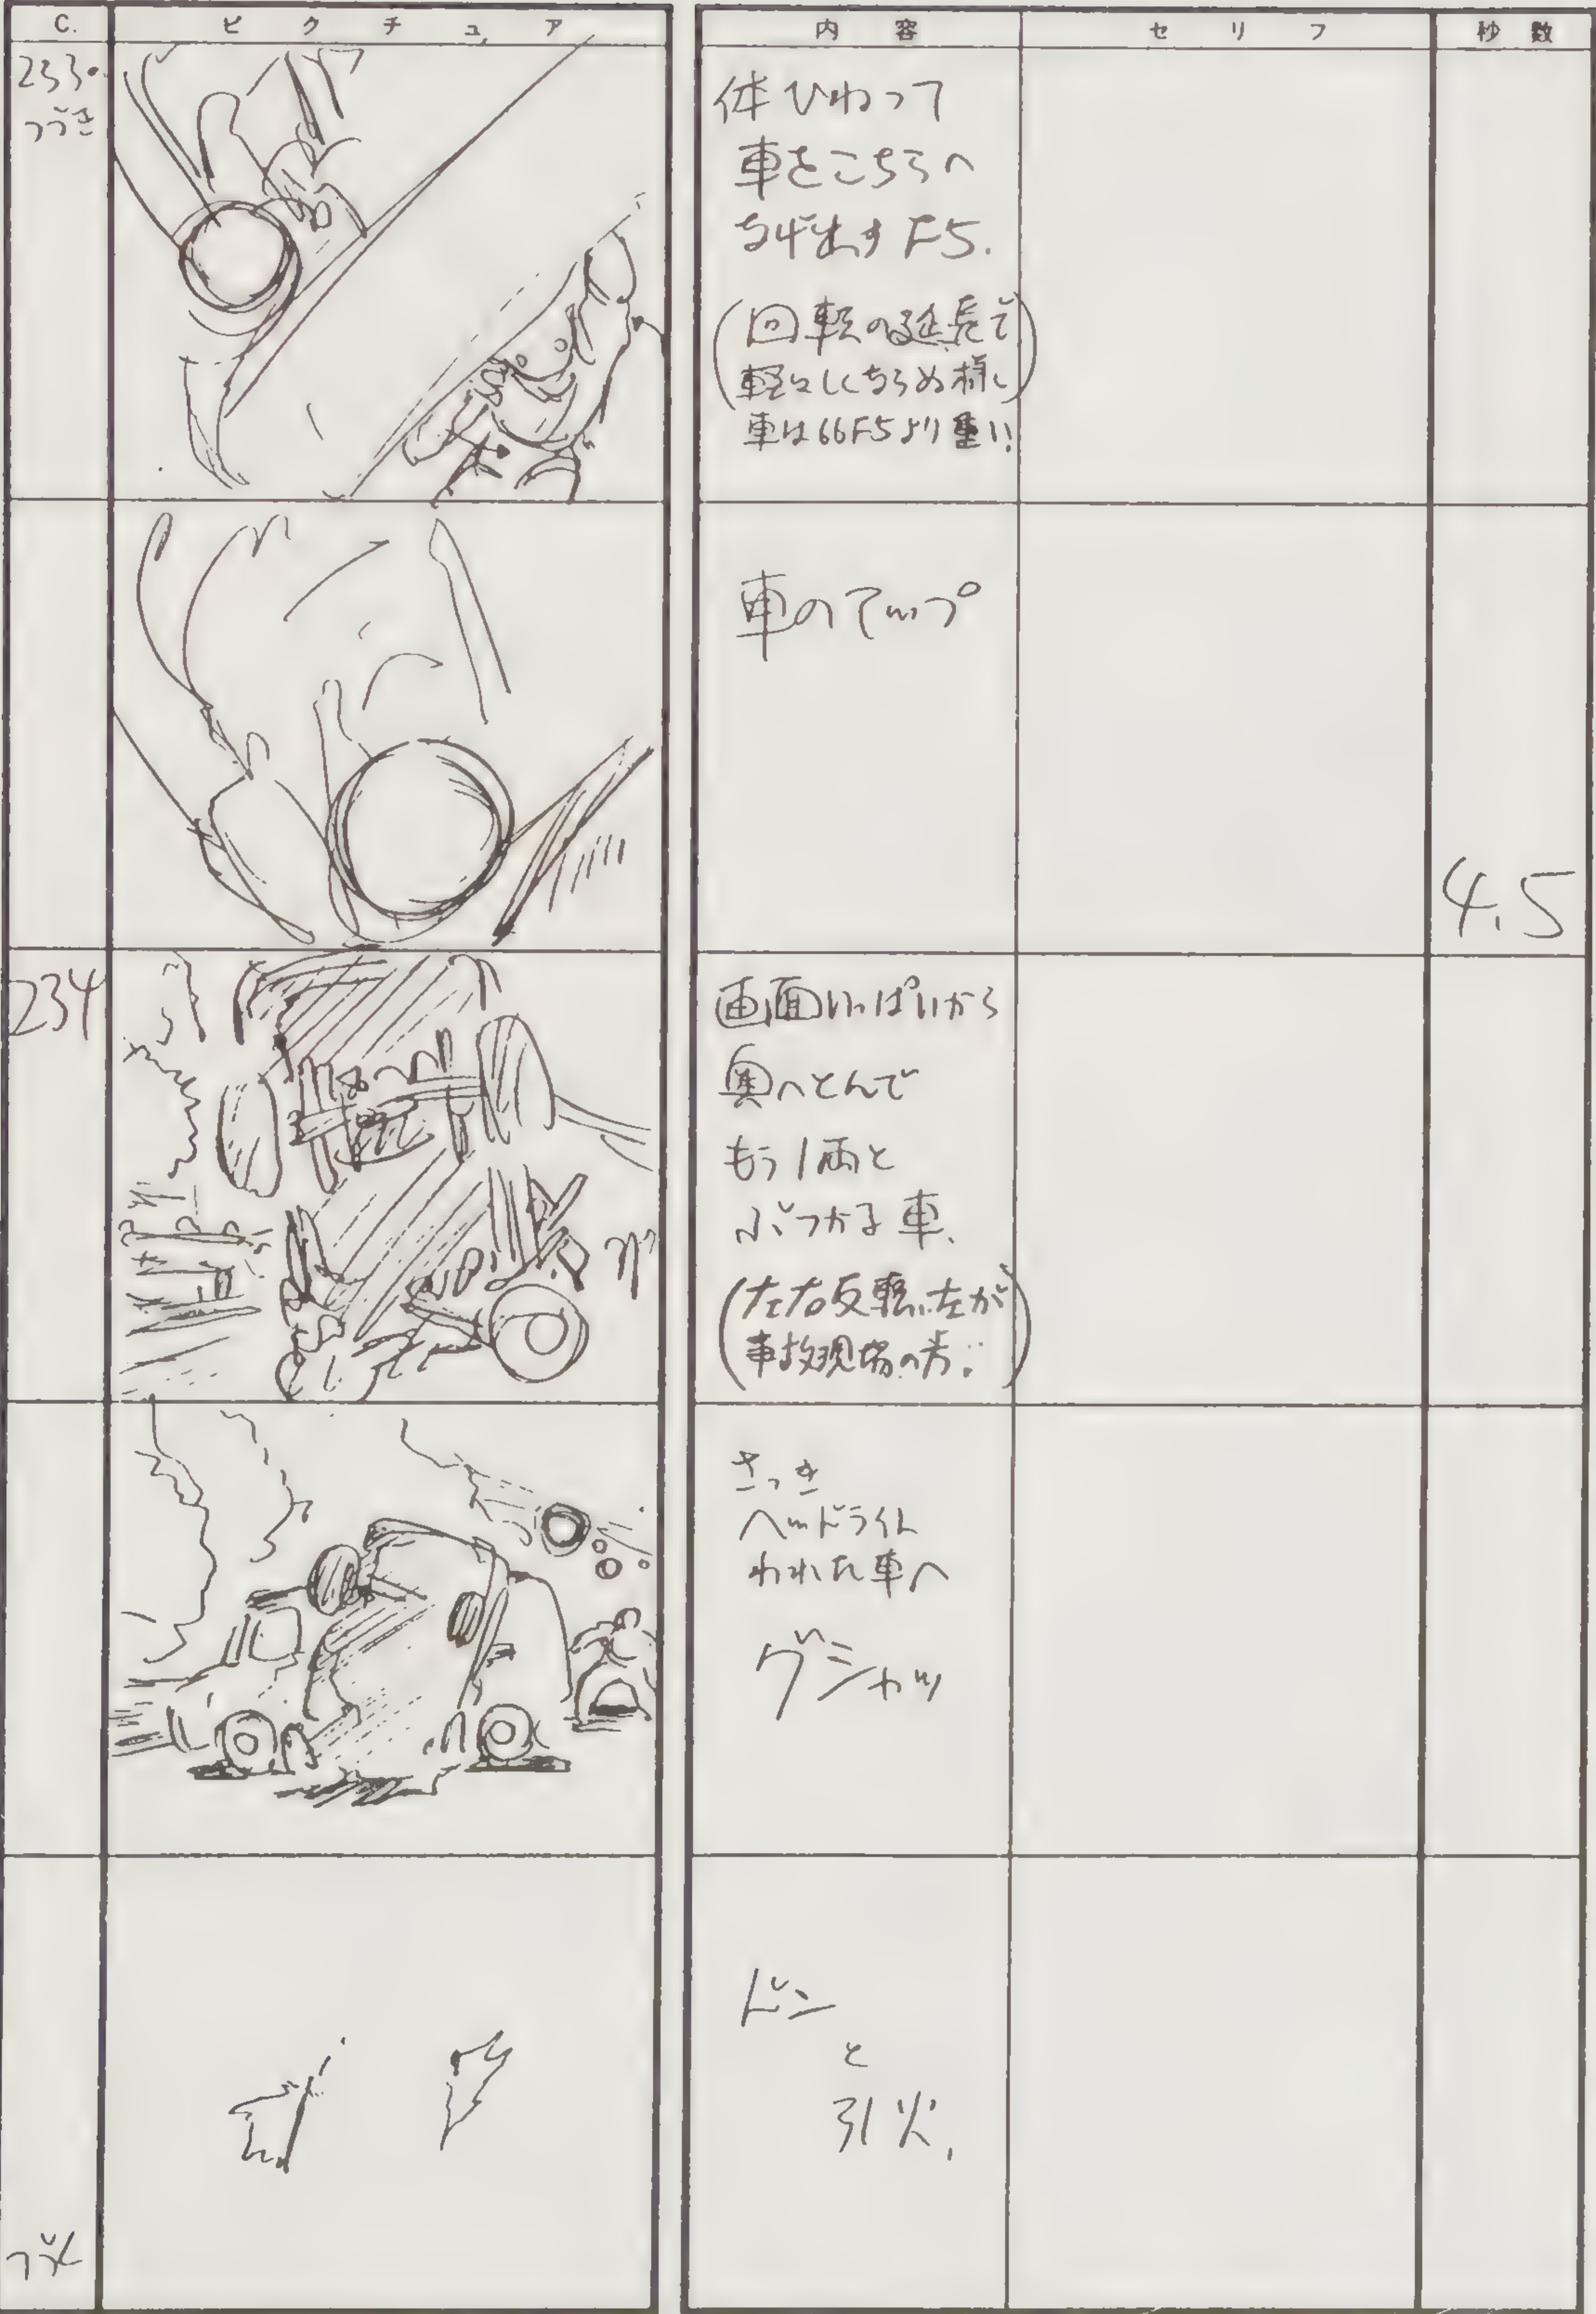 C. ピクチュア 内容 セリフ 秒数
233
つづき
体ひねって
車をこちらへ
なげ出すF5.
(回転の延長で
軽々しくならぬ様に
車は66F5より重い!)
車のアップ
4.5
234
画面いっぱいから
奥へとんで
もう1両と
ぶつかる車、
(左右反転、左が
事故現場の方.)
さっき
ヘッドライト
われた車へ
グシャッ
ドン
と
引火、
つづく